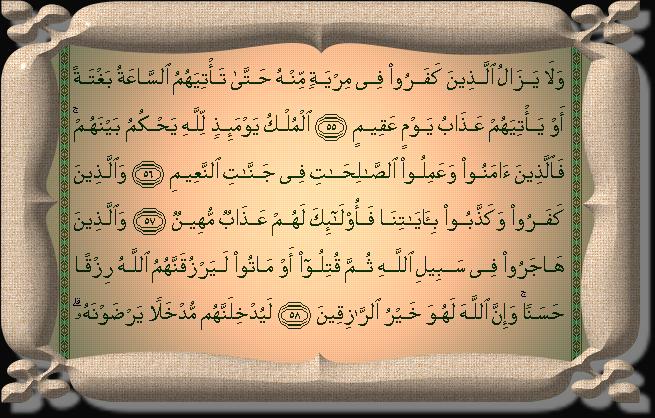 وَلَا يَزَالُ ٱلَّذِينَ كَفَرُوا۟ فِى مِرْيَةٍ مِّنْهُ حَتَّىٰ تَأْتِيَهُمُ ٱلسَّاعَةُ بَغْتَةً
أَوْ يَأْتِيَهُمْ عَذَابُ يَوْمٍ عَقِيمٍ ٥٥ ٱلْمُلْكُ يَوْمَئِذٍ لِّلَّهِ يَحْكُمُ بَيْنَهُمْ ۚ
فَٱلَّذِينَ ءَامَنُوا۟ وَعَمِلُوا۟ ٱلصَّـٰلِحَـٰتِ فِى جَنَّـٰتِ ٱلنَّعِيمِ ٥٦ وَٱلَّذِينَ
كَفَرُوا۟ وَكَذَّبُوا۟ بِـَٔايَـٰتِنَا فَأُو۟لَـٰٓئِكَ لَهُمْ عَذَابٌ مُّهِينٌ ٥٧ وَٱلَّذِينَ
هَاجَرُوا۟ فِى سَبِيلِ ٱللَّهِ ثُمَّ قُتِلُوٓا۟ أَوْ مَاتُوا۟ لَيَرْزُقَنَّهُمُ ٱللَّهُ رِزْقًا
حَسَنًا ۚ وَإِنَّ ٱللَّهَ لَهُوَ خَيْرُ ٱلرَّٰزِقِينَ ٥٨ لَيُدْخِلَنَّهُم مُّدْخَلًا يَرْضَوْنَهُۥ ۗ